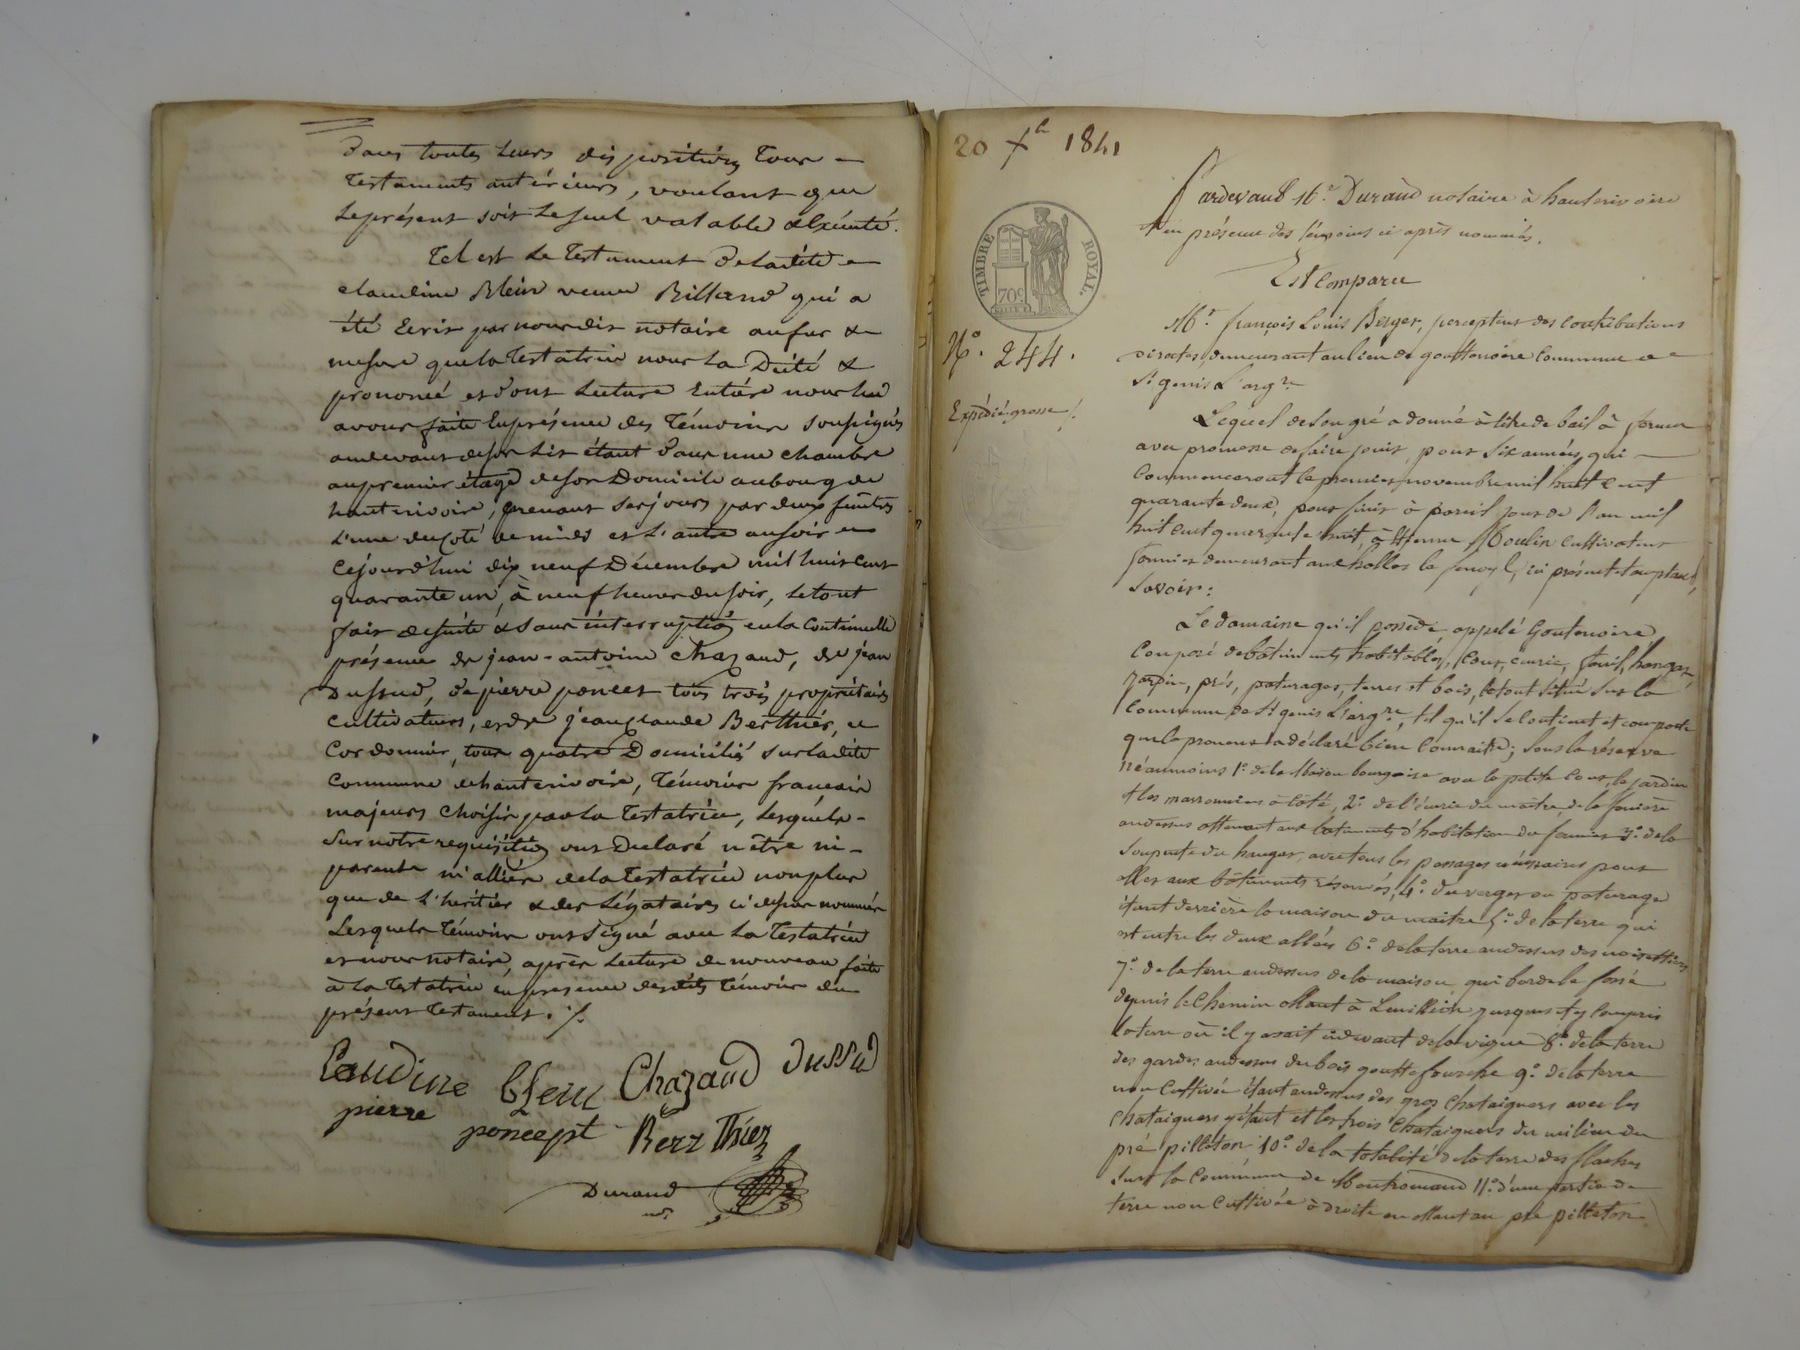 dans toutes leurs dispositions tous
testaments antérieurs, voulant que
le présent soit le seul valable & exécuté.
Tel est le Testament de ladite
claudine Blein veuve Billand qui a
été Ecrit par nous dit notaire au fur &
mesure que la Testatrice nous l'a Dicté &
prononcé et dont Lecture Entière nous lui
avons faite En présence des Témoins soussignés
au devant de son Lit étant dans une chambre
au premier étage de son Domicile au bourg de
hauterivoire, prenant ses jours par deux fenêtres
L'une du Coté de midi et L'autre au soir
Cejourd'hui dix neuf Décembre mil huit cent
quarante un, à neuf heures du soir, le tout
fait de suite & sans interruption en la Continuelle
présence de jean-antoine Chazaud, de jean
Dussud, de pierre poncet tous trois propriétaires
cultivateurs, et de jean claude Berthier,
Cordonnier, tous quatre Domiciliés sur ladite
Commune de hauterivoire, Témoins français
majeurs choisis par la Testatrice, Lesquels
Sur notre requisition ont Declaré n'être ni
parents ni alliés de la Testatrice non plus
que de L'héritier & des Légataires ci dessus nommés
Lesquels Témoins ont signé avec la Testatrice
et nous notaire, après Lecture de nouveau faite
à la Testatrice en presence desdits Témoins du
présent Testament. ./.
Caudine blein Chazaud dussud
pierre poncept Berr Thier
Durand
nre
20 Xbre 1841
TIMBRE ROYAL.
70c
No. 244.
Expédié grosse ./.
Pardevant Me. Durand notaire à hauterivoire
& en présence des témoins ci après nommés.
Est Comparu
Mr. françois Louis Berger, percepteur des Contributions
directes, demeurant au lieu de gouttenoire Commune de
St genis L'argre
Lequel de son gré a donné à titre de bail à ferme
avec promesse de faire jouir, pour six années, qui
Commenceront le premier novembre mil huit cent
quarante deux, pour finir à pareil jour de l'an mil
huit cent quarante huit, à Etienne Moulin cultivateur
fermier demeurant aux halles le fenoyl, ici présent & acceptant,
Savoir:
Le domaine qu'il possède, appelé Goutenoire
Composé de bâtiments habitables, Cour, écurie, fenil, hangar,
jardin, prés, paturages, terres et bois, le tout situé sur la
Commune de St genis L'argre, tel qu'il se Contient et comporte
que le preneur a déclaré bien Connaitre; Sous la réserve
néanmoins 1o. de la Maison bourgeoise avec la petite Cour, le jardin
& les marronniers à Côté, 2o. de l'écurie du maître, de la fenière
au dessus attenant aux batiments d'habitation du fermier 3o. de la
Soupente du hangar, avec tous les passages nécessaires pour
aller aux bâtiments réservés, 4o. du verger ou paturage
étant derrière la maison du maitre 5o. de la terre qui
est entre les deux allées 6o. de la terre au dessus des noisettiers
7o. de la terre au dessus de la maison, qui borde le fossé
depuis le Chemin allant à jusques et y Compris
la terre où il y avait ci devant de la vigne 8o. de la terre
des gardes au dessus du bois goutte fourche 9o. de la terre
non Cultivée étant au dessus des gros Chataigners avec les
Chataigners y étant et les trois Chataigners du milieu du
pré pilleton 10o. de la totalité de la terre des flaches
sur la Commune de Montromand 11o. d'une partie de
terre non Cultivée à droite en allant au pré pilleton